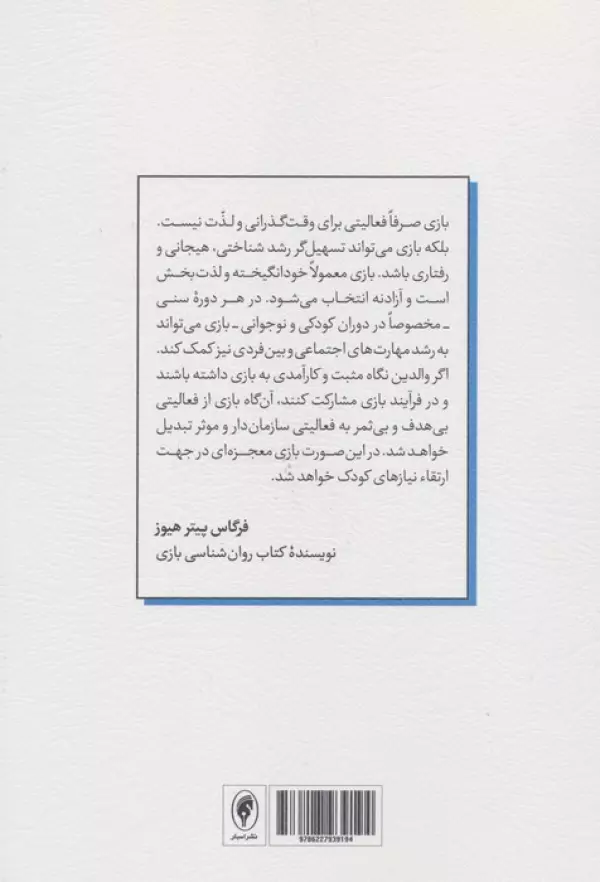 بازی صرفاً فعالیتی برای وقت‌گذرانی و لذّت نیست.
بلکه بازی می‌تواند تسهیل‌گر رشد شناختی، هیجانی و
رفتاری باشد. بازی معمولاً خودانگیخته و لذت‌بخش
است و آزادنه انتخاب می‌شود. در هر دورهٔ سنی
ـ مخصوصاً در دوران کودکی و نوجوانی ـ بازی می‌تواند
به رشد مهارت‌های اجتماعی و بین‌فردی نیز کمک کند.
اگر والدین نگاه مثبت و کارآمدی به بازی داشته باشند
و در فرآیند بازی مشارکت کنند، آن‌گاه بازی از فعالیتی
بی‌هدف و بی‌ثمر به فعالیتی سازمان‌دار و موثر تبدیل
خواهد شد. در این صورت بازی معجزه‌ای در جهت
ارتقاء نیازهای کودک خواهد شد.
فرگاس پیتر هیوز
نویسندهٔ کتاب روان‌شناسی بازی
9786227939194